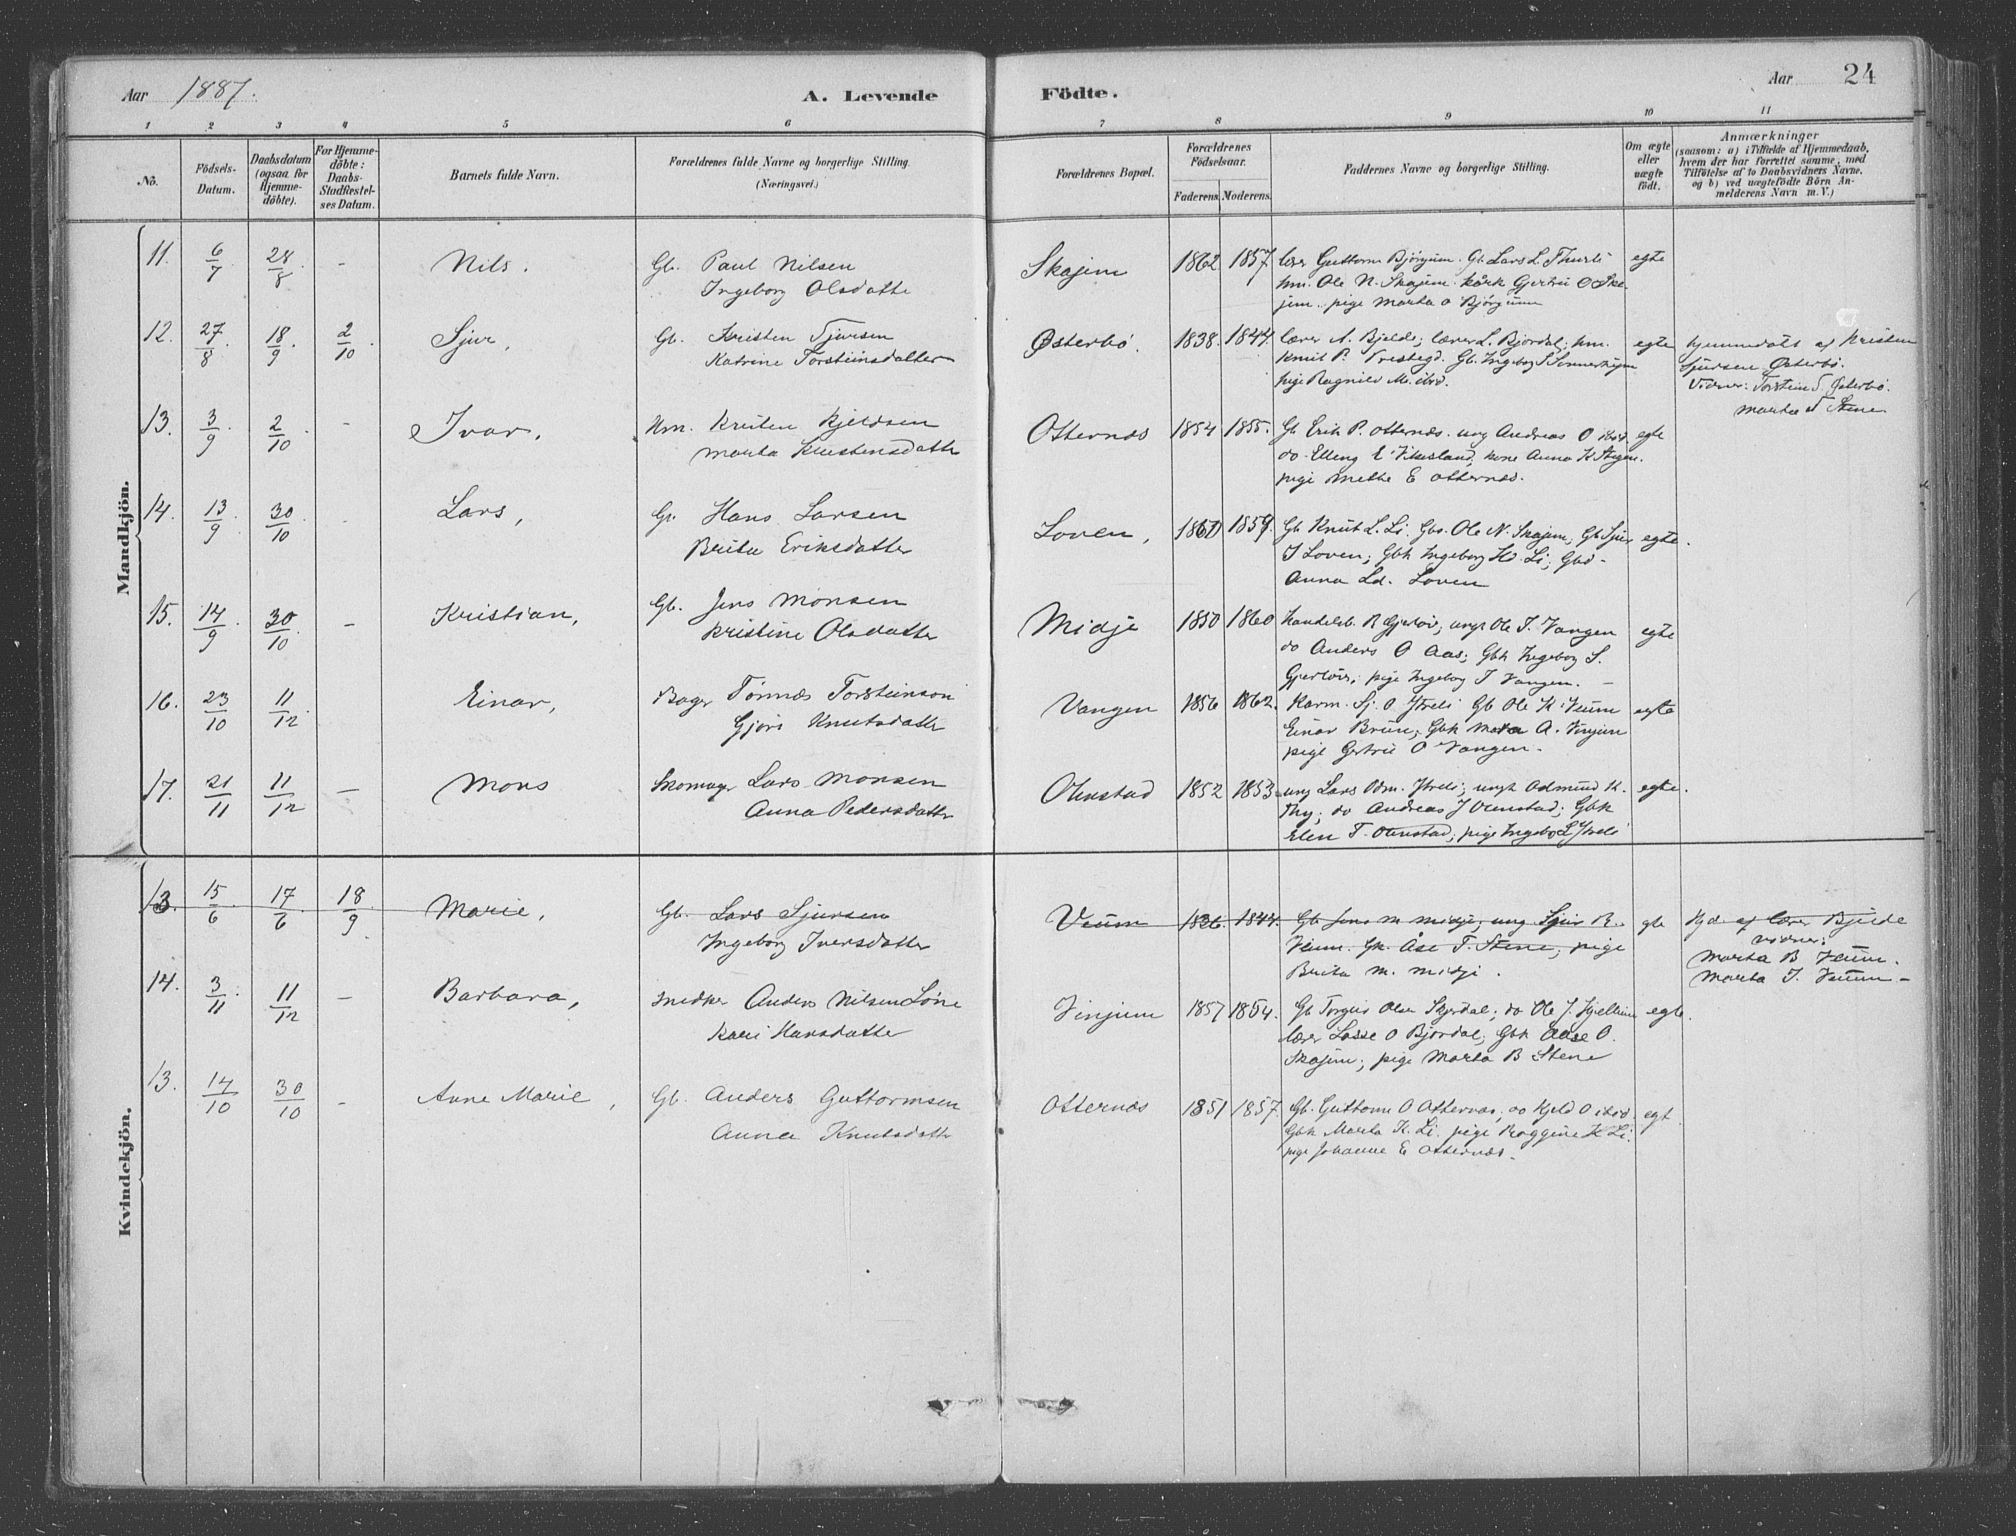 Aar 1887.
A. Levende Födte.
Aar 24
1 2 3 4 5 6 7 8 9 10 11
No.
Födsels-Datum.
Daabsdatum (ogsaa for Hjemmedöbte).
For Hjemmedöbte: Daabs-Stadfæstelses Datum.
Barnets fulde Navn.
Forældrenes fulde Navne og borgerlige Stilling. (Næringsvei.)
Forældrenes Bopæl.
Forældrenes Födselsaar.
Faderens. Moderens.
Faddernes Navne og borgerlige Stilling.
Om ægte eller uægte födt.
Anmærkninger (saasom: a) i Tilfælde af Hjemmedaab, hvem der har forrettet samme, med Tilföielse af to Daabsvidners Navne, og b) ved uægtefödte Börn Anmelderens Navn m. V.)
Mandkjön.
11. 6/7 28/8 - Nils. Gb. Paul Nilsen Skajem 1862 1857 lærer Guttorm Bjørgum. Gb Lars L. egte
Ingeborg Olsdatte hm. Ole N. Skajem Gjertru O Ska-
jem. pige Marta O Bjørgum
12. 27/8 18/9 2/10 Sjur, Gb. Kristen Sjursen Østerbø. 1838. 1844. lærer A. Bjelde; lærer L. Bjordal; hm. egte hjemmedøbt af Kristen
Katrine Torsteinsdatter Knut P. Gb. Ingeborg S Sjursen Østerbø.
pige Ragnild M. ibd. Vidner: Torstein S. Østerbø.
Marta T Stene
13. 3/9 2/10 - Ivar, Hm. Kristen Kjeldsen Otternæs 1854 1855. Gb Erik P. Otternæs. ung Andreas O ibid egte
Marta Kristensdatte do. Elling E Vikesland, kone Anna K Stigen.
pige Methe E Otternæs.
14. 13/9 30/10 - Lars, Gb. Hans Larsen Loven, 1859. Gb Knut L. Li. Gbs. Ole N. Skajem, Gb Sjur egte.
Brita Eriksdatter I Loven; Gbk Ingeborg Li; Gbd.
Anna Ld. Loven
15. 14/9 30/10 - Kristian, Gb. Jens Monsen Midje 1850 1860 Handelsb. R Gjerløv; ungk Ole T. Vangen egte
Kristine Olsdatter do Anders O Aas; Gbk Ingeborg S.
Gjerløv; pige Ingeborg T Vangen. -
16. 23/10 11/12 Einar, Bager Tønnes Torsteinson Vangen 1856 1862. Sj. O Ytreli Gb Ole K Veum egte
Gjøri Knutsdatte Einar Brun; Gbk Marta A. Vinjum
pige Gertru O Vangen.
17. 21/11 11/12 - Mons Skomager Lars Monsen Olmstad 1852 1853 ung Lars Odm. Ytreli; ungk Odmund K. egte.
Anna Pedersdatte Thy; do Andreas J Olmstad; Gbk
Elen T. Olmstad; pige Ingebor L Ytreli
Kvindekjön.
13. 15/6 17/6 18/9 Marie, Gb. Lars Sjursen Veum 1826. 1844. Gb Jens M Midje; ung Sjur R. gte Hjd. af lærer Bjelde
Ingeborg Iversdatter Veum. Gk. Åse T. Stene, pige vidner:
Brita M. Midje. Marta B Veum.
Marta I. Veum -
14. 3/11 11/12 - Barbara, Snedker Anders Nilsen Løne Vinjum 1857 1854. Gb Torgils Olsen Skjerdal; do Ole J. egte.
Kari Hansdatte lærer Lasse O Bjordal; Gbk Aase O.
Skajem; pige Marta B Stene
13. 14/10 30/10 - Anne Marie, Gb. Anders Guttormsen Otternæs 1851 1857. Gb. Guttorm O Otternæs, do Kjeld O ibid egt.
Anna Knutsdatte Gbk Marta K. Li. pige K Li.
pige Johanne E Otternæs.